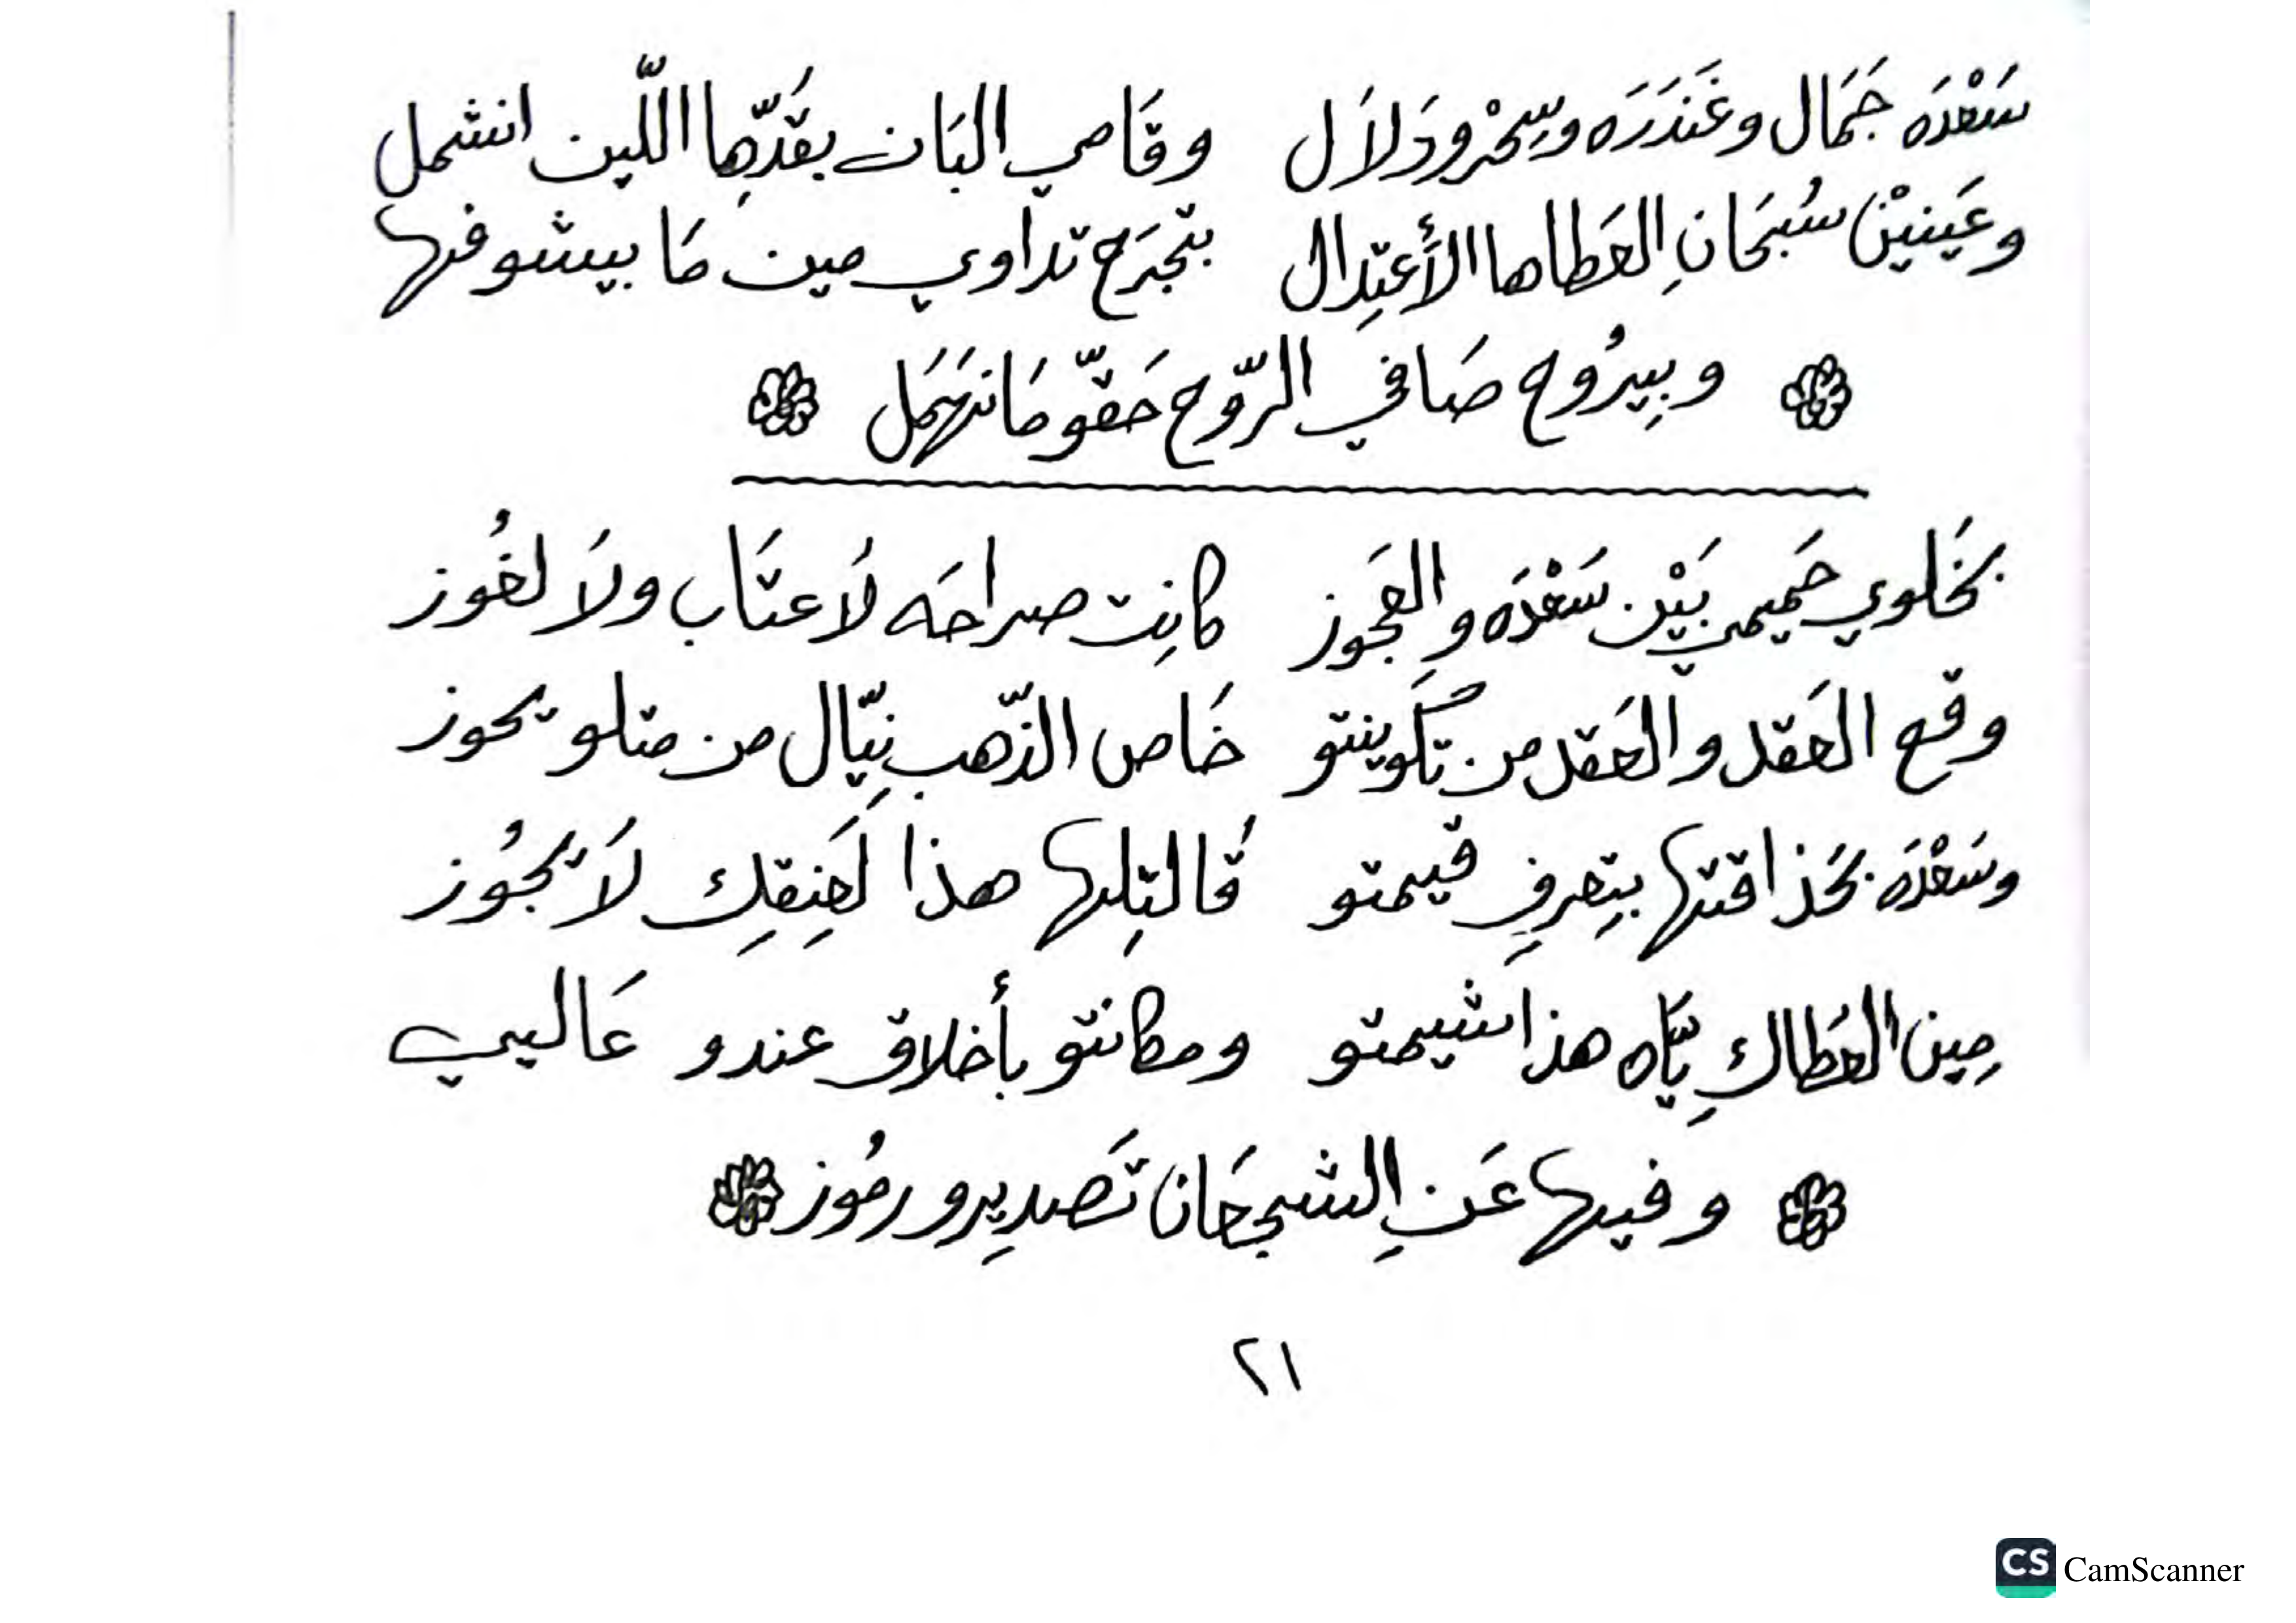 سَعْدَه جَمَال وغَندَرَه وسِحْر ودَلاَل وقَاصي البَان بقَدّهِا اللّين انشمل
وعَينيْن سُبحَانِ العَطاها الأَعتِدال بتجرَح تداوي مين مَا بيشوفها
وبِيرُوح صَافي الرّوح حَقّو مَا نهَمَل
بخَلوي حَميمي بَيْن سَعْدَه والعَجوز كانِت صراحَه لاَ عتَاب ولاَ لغُوز
وقع العَقد والعَقد من تكوينتو خَاص الذّهب نِيّال من متلو يحوز
وسَعْدَه بحَذاقتها بيتِعرفِ قيمتو قَالتِلها هذا لعَنِقكِ لاَ يجُوز
مِين العَطاكِ يَّاه هذا شيمتو ومكانتو بأخلاق عندو عَاليي
وفيها عَنِ الشبحَان تَصديِر ورمُوز
٢١
CS CamScanner